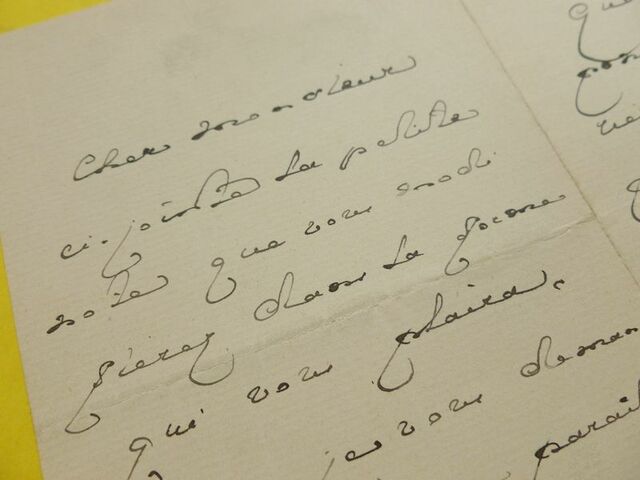 Cher Monsieur
ci-jointe la petite
note que vous modi
fierez dans la forme
qui vous plaira.
je vous deman
parait